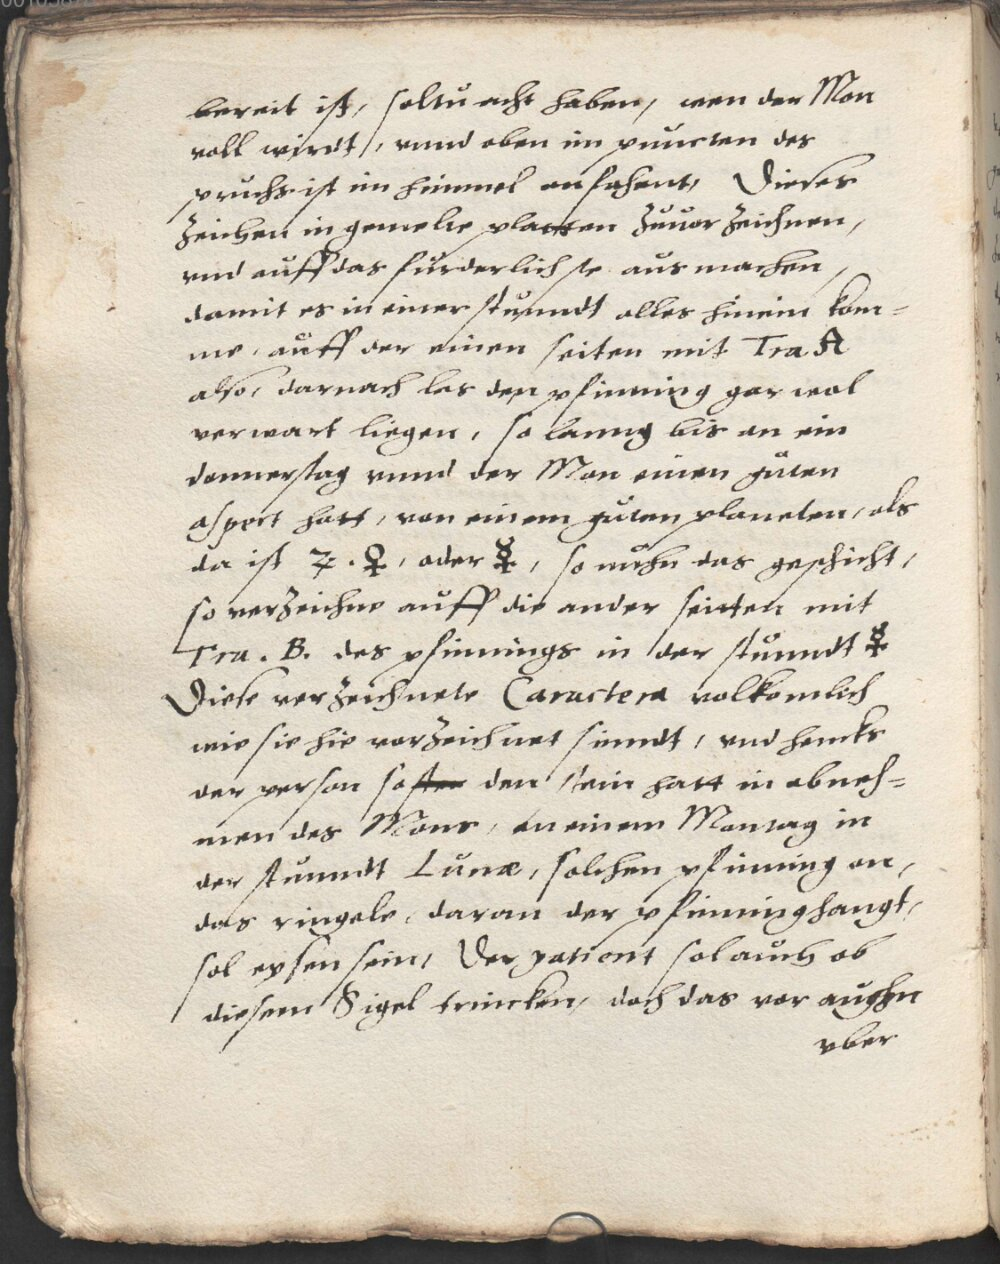 bereit ist, soltu acht haben, wen der Mon
voll wirdt, vnnd oben im puncten des
spruchs ist im himmel anfahent, Dieses
Zeichen in gemelte platten zuuor zeichnen,
vnd auff das furderlichste ausmachen,
damit es in einer stunndt alles hinein kom=
me, auff der einen seiten mit Tra. A
also, darnach las den pfinning gar wol
verwart liegen, so lanng bis an ein
donnerstag vnnd der Mon einen guten
aspect hatt, von einem guten planeten, als
da ist ♃. ♀, oder ☿, so nuhn das geschicht,
so verzeichne auff die ander seitten mit
Tra. B. des pfinnings in der stunndt ☿
Diese verzeichnete Caractera volkomlich
wie sie hie vorzeichnet sinndt, vnd hencks
der person so den stein hatt in abneh=
men des Mons, an einem Montag in
der stunndt Lunæ, solchen pfinning an,
das ringele, daran der pfinning hangt,
sol eysen sein, Der patient sol auch ob
diesem Sigel trincken, doch das vor
vber